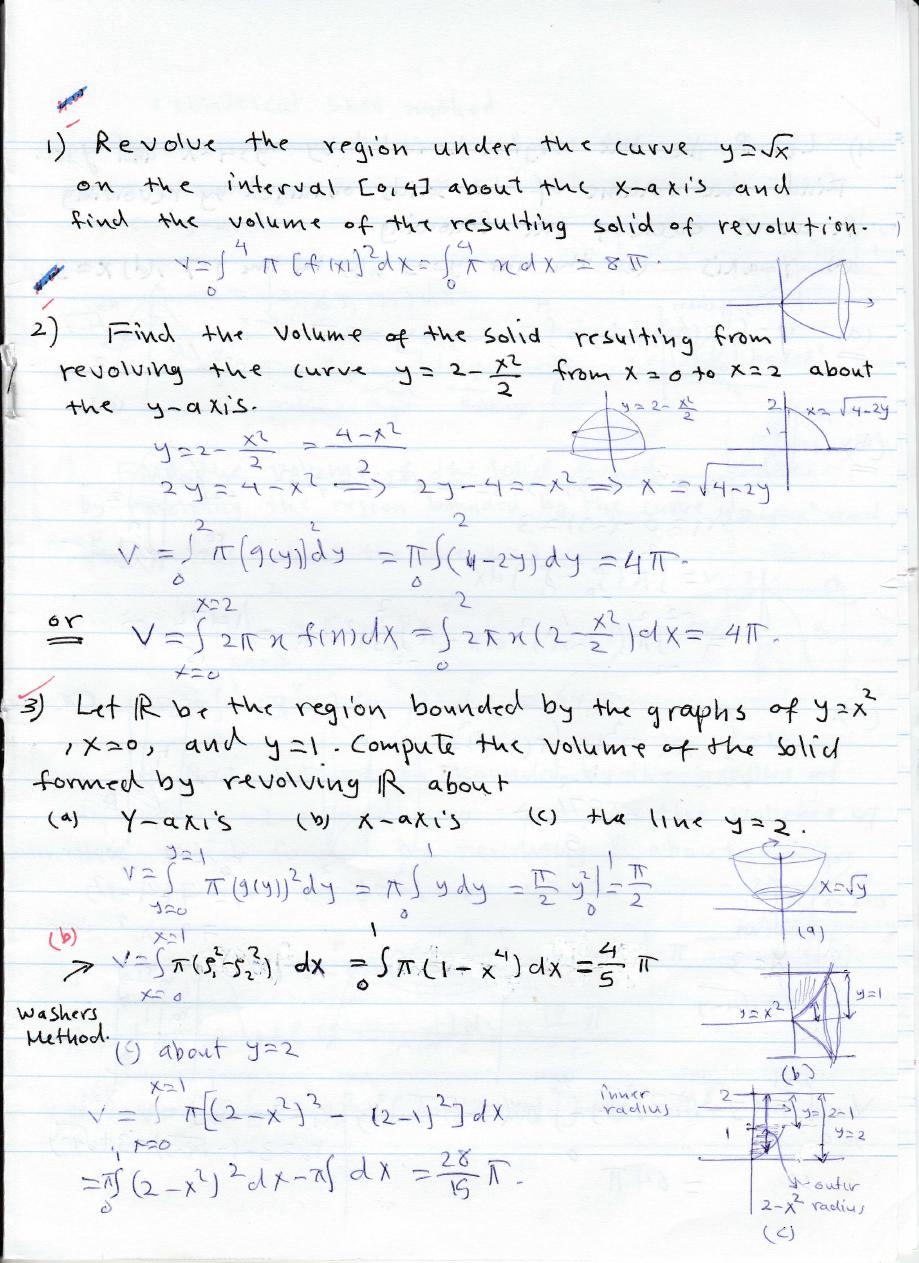 1) Revolve the region under the curve y=√x
on the interval [0,4] about the x-axis and
find the volume of the resulting solid of revolution.
V=∫₀⁴ π [f(x)]²dx=∫₀⁴ π x dx = 8π.
2) Find the volume of the solid resulting from
revolving the curve y = 2-x²/2 from x=0 to x=2 about
the y-axis.
y=2-x²/2
2 x=√4-2y
1
y=2-x²/2 = 4-x²/2
2y=4-x² ⟹ 2y-4=-x² ⟹ x=√4-2y
V=∫₀² π(g(y))²dy = π∫₀²(4-2y)dy = 4π.
or V=∫ₓ₌₀ˣ⁼² 2πx f(x)dx=∫₀² 2πx(2-x²/2)dx= 4π.
3) Let R be the region bounded by the graphs of y=x²
, x=0, and y=1. Compute the volume of the solid
formed by revolving R about
(a) Y-axis (b) x-axis (c) the line y=2.
V=∫ y=0 y=1 π(g(y))²dy = π∫₀¹ y dy = π/2 y²|₀¹=π/2
x=√y
(a)
(b)
→ V=∫ₓ₌₀ˣ⁼¹ π(ρ₁²-ρ₂²) dx =∫₀¹ π(1-x⁴)dx=4/5 π
Washers
Method.
y=x² y=1
(b)
(c) about y=2
V=∫ₓ₌₀ˣ⁼¹ π[(2-x²)²-(2-1)²]dx
=π∫₀¹(2-x²)²dx-π∫ dx = 28/15 π.
inner
radius
2
1
2-1
y=2
outer
2-x² radius
(c)